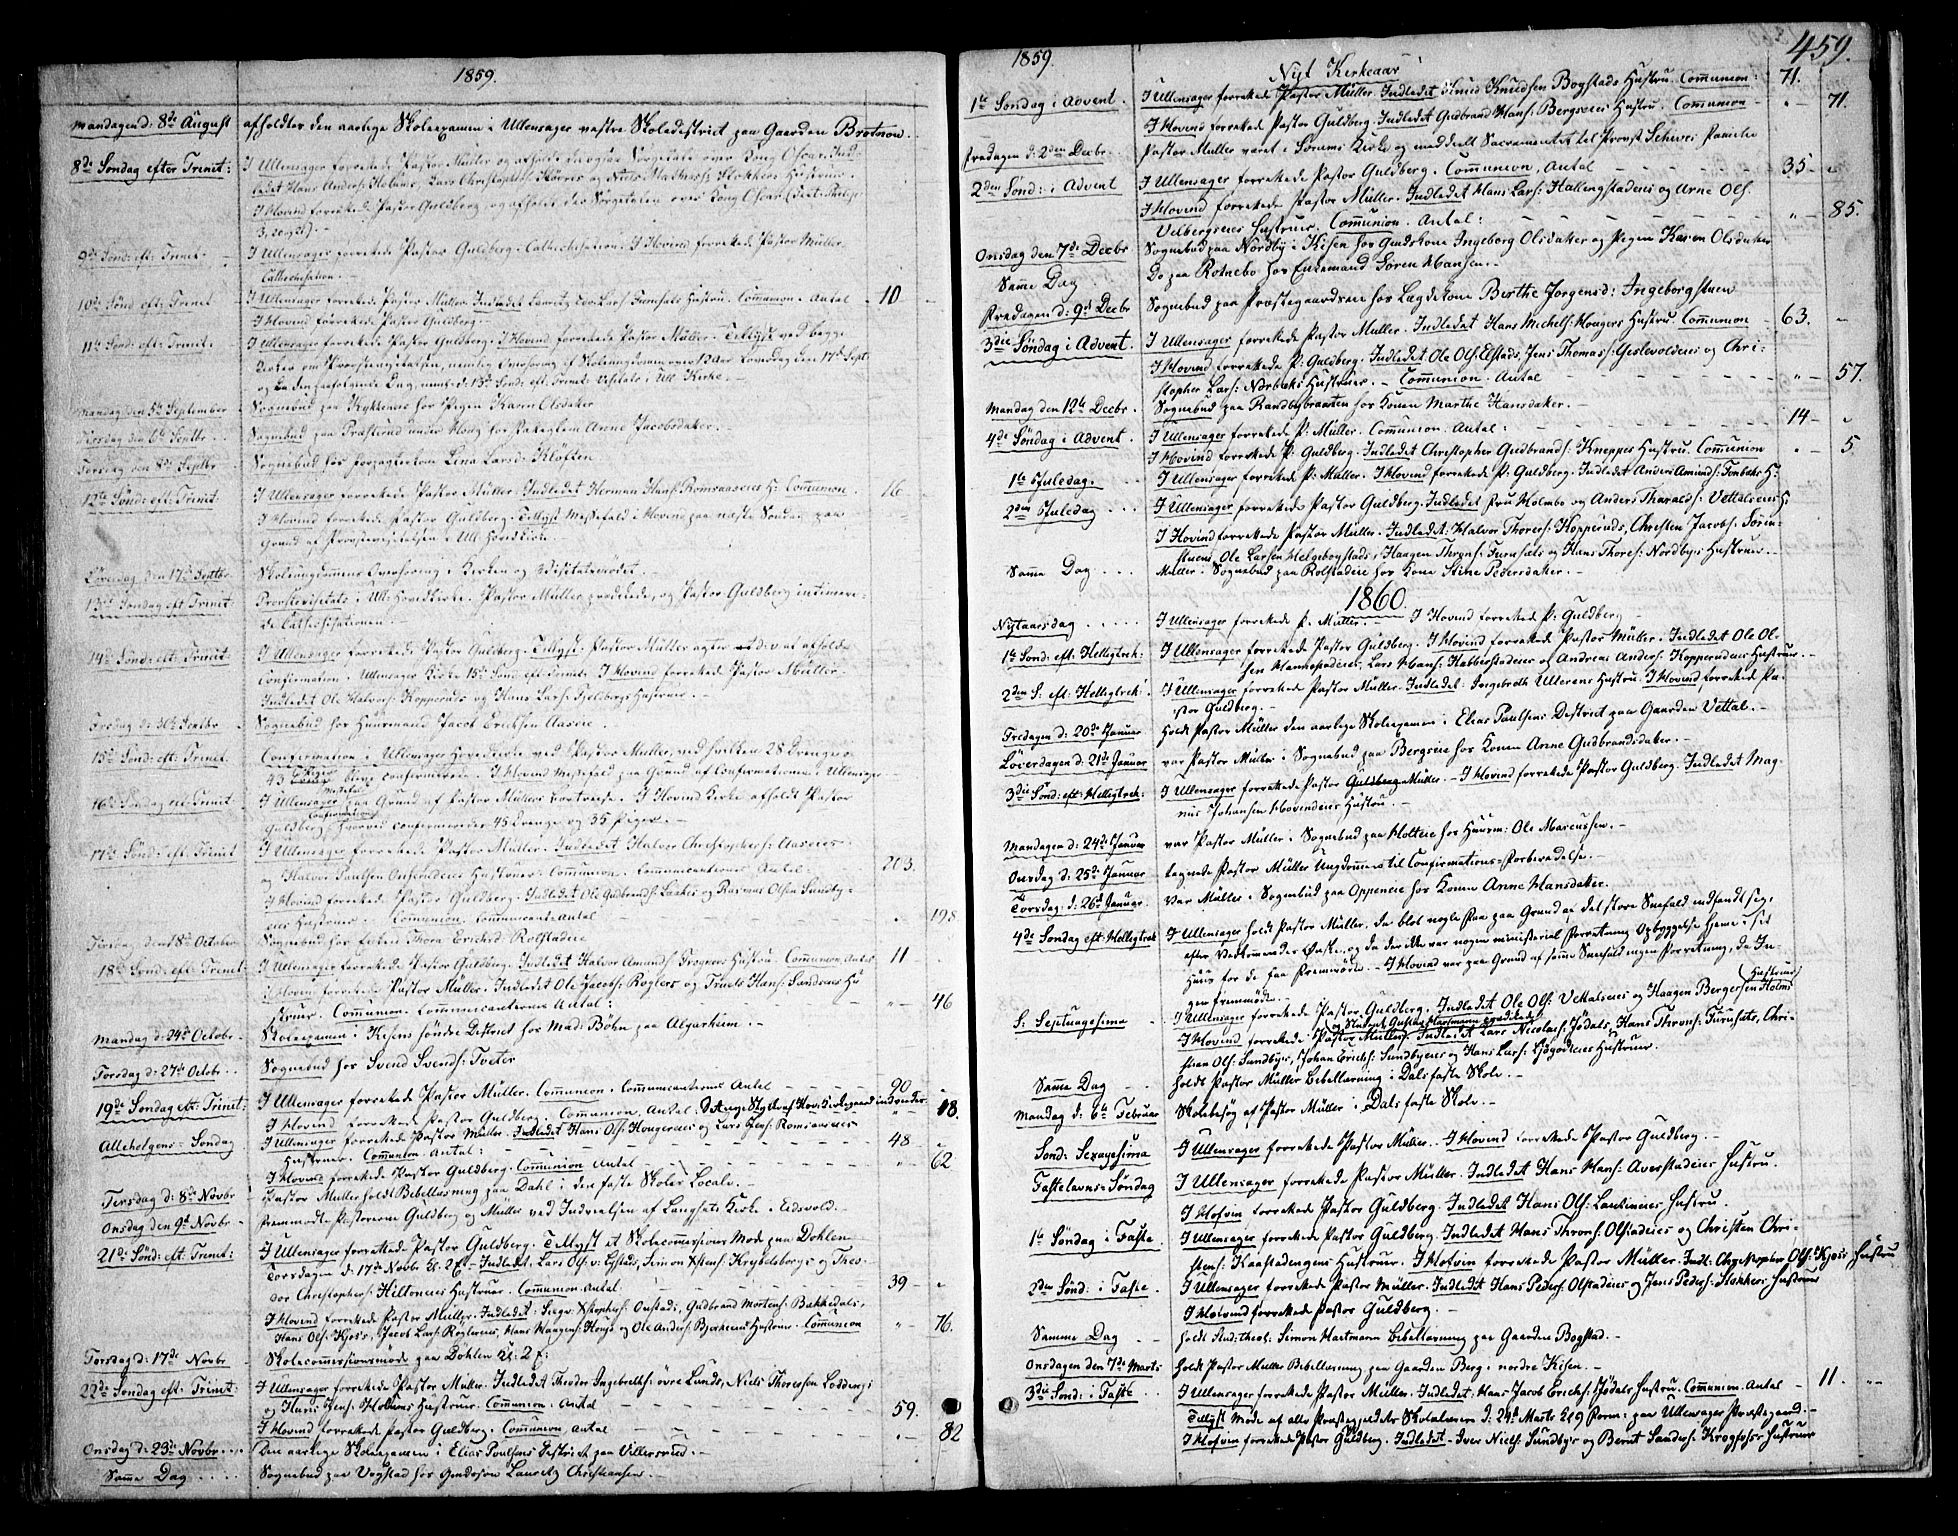 1859.
Mandagen d: 8de August afholdtes den aarlige Skoleexamen i Ullensager vestre Skoledistrict paa Gaarden Brotnov.
8de Søndag efter Trinit: I Ullensager forrettede Pastor Müller og afholdt derogsaa Sørgetale over Kong Oscar. Ind-
ledet Hans Anders: Lars Christophers: og Niels Mathias: Hustruer.
I Hovind forrettede Pastor Guldberg, og afholdt der Sørgetalen over Kong Oscar (Text: Philip:
3, 20 og 21). -
9de Sønd: eft: Trinit. I Ullensager forrettede Pastor Guldberg. Cathechisation. I Hovind forrettede Pastor Müller.
Cathechisation. -
10de Sønd: eft: Trinit I Ullensager forrettede Pastor Müller. Indledet Lauritz Hustru. Communion. Antal 10 -
I Hovind forrettede Pastor Guldberg. -
11te Sønd: eft: Trinit. I Ullensager forrettede Pastor Guldberg. I Hovind forrettede Pastor Müller. Tillyst ved begge
Steder om Provstevisitatsen, nemlig Overhøring af Skoleungdommen Løverdag den 17de Sept:
og Dagen derpaafølgende Dag, 13de Sønd: eft: Trinit: Visitats i Ull: Kirke.
Mandag den 5te September Sognebud paa Kykkeneie hos Pigen Karen Olsdatter
Tirsdag den 6te Septbr Sognebud paa under Hov hos Anne Jacobsdatter.
Torsdag den 8de Septbr Sognebud hos Lina Larsd: Kløften
12te Sønd: eft: Trinit. I Ullensager forrettede Pastor Müller. Indledet Herman Hans: Romsaaseies H: Communion. 16
I Hovind forrettede Pastor Guldberg. Tillyst Messefald i Hovind paa næste Søndag paa
Grund af Provstevisitatsen i Ull: Hovedkirke. -
Løverdag den 17de Septbr Skoleungdommens Overhøring i Kirken og Visitatsmødet. -
13de Søndag eft: Trinit Provstevisitats i Ull: Hovedkirke. Pastor Müller prædikede, og Pastor Guldberg intimere-
de Cathechisationen. -
14de Sønd: eft: Trinit. I Ullensager forrettede Pastor Guldberg. Tillyst: Pastor Müller agter at afholde
Confirmation i Ullensager Kirke 15de Sønd: eft: Trinit. I Hovind forrettede Pastor Müller.
Indledet Ole Halvors: Kopperuds og Hans Lars: Fjeldbergs Hustruer. -
Sognebud hos Huusmand Jacob Ericksen Aaseie. -
15de Sønd: eft: Trinit. Confirmation i Ullensager Hovedkirke ved Pastor Müller, ved hvilken 28 Drenge og
43 Piger bleve confirmerede. I Hovind Messefald paa Grund af Confirmationen i Ullensager
16de Søndag eft: Trinit I Ullensager Messefald paa Grund af Pastor Müllers Bortreise. I Hovind Kirke afholdt Pastor
Guldberg Confirmation, hvorved confirmeredes 45 Drenge og 35 Piger. -
17de Sønd: eft: Trinit I Ullensager forrettede Pastor Müller. Indledet Halvor Christophers: Aaseies
og Halvor Paulsen Hustruer. Communion. Communicanternes Antal 203.
I Hovind forrettede Pastor Guldberg. Indledet Ole Gudbrands: Laakes og Rasmus Olsen Sundby-
eies Hustruer. - Communion. Communicantantal - 198
Tirsdag den 18de October Sognebud hos Thora Ericksd: Rolstadeie
18de Sønd: eft: Trinit: I Ullensager forrettede Pastor Guldberg. Indledet Halvor Amunds: Frogners Hustru. Communion. Antal 11 -
I Hovind forrettede Pastor Müller. Indledet Ole Jacobs: Røglers og Truels Hans: Sandsnes Hu
struer. Communion. Communicanternes Antal: " - 46
Mandag d: 24de Octobr. Skoleexamen i Kisens søndre District hos Mad: Bøhn paa Algarheim. -
Torsdag d: 27de Octobr. Sognebud hos Svend Svends: Tveter
19de Søndag eft: Trinit: I Ullensager forrettede Pastor Müller. Communion. Communicanternes Antal 90 -
I Hovind forrettede Pastor Guldberg. Communion. Antal. " - 18.
Allehelgens-Søndag I Ullensager forrettede Pastor Müller. Indledet Hans Ols: Haugerseies og Lars Jens: Romsaaseies
Hustruer. Communion. Antal: 48 -
I Hovind forrettede Pastor Guldberg. Communion Antal " - 62
Tirsdag d: 8de Novbr Pastor Müller holdt Bibellæsning paa Dahl i den faste Skoles Locale. -
Onsdag den 9de Novbr. Fremmødte Pastorerne Guldberg og Müller ved Indvielsen af Langsets Kirke i Eidsvold. -
21de Sønd: eft: Trinit: I Ullensager forrettede Pastor Guldberg. Tillyst et Skolecommissions Møde paa Døhlen
Torsdagen d. 17de Novbr Kl. 2 Eft. - Indledet: Lars Ols: v: Ulstads, Simon Xstens: Krybelsborgs og Theo-
dor Christophers: Hiltoneies Hustruer. Communion Antal 39 -
I Hovind forrettede Pastor Müller. Indledet: Seegv: Xstophers: Onstads, Gudbrand Mortens: Bakkedals,
Hans Ols: Kjos's, Jacob Lars: Røglereies, Hans Haagens: Hougs og Ole Anders: Bjerkeeies Hustruer. Communion " - 76.
Torsdag d: 17de Novbr Skolecommissionsmøde paa Døhlen Kl: 2 E:
22de Søndag eft: Trinit: I Ullensager forrettede Pastor Müller. Indledet Theodor Ingebrethsens: øvre Lunds, Niels Thoresen Lødding's
og Hans Jens: Holmens Hustruer. Communion. Antal 59.
I Hovind forrettede Pastor Guldberg. Communion Antal " - 82
Onsdag d: 23de Novbr. Den aarlige Skoleexamen i Elias Poulsens District paa Villersrud. -
Samme Dag Sognebud paa Vogstad hos Lauritz Christiansen. -
459.
1859.
Nyt Kirkeaar
1ste Søndag i Advent. I Ullensager forrettede Pastor Müller. Indledet Knud Knudsen Bogstads Hustru. Communion: 71. -
I Hovind forrettede Pastor Guldberg. Indledet Gudbrand Hans: Bergseeies Hustru. Communion - " - 71.
Fredagen d: 2den Decbr. Pastor Müller været i Sørums Kirke og meddeelt Sacramentet til Provst Schives Familie
2den Sønd: i Advent I Ullensager forrettede Pastor Guldberg. Communion. Antal 35 - "
I Hovind forrettede Pastor Müller. Indledet Hans Lars: Hallengstadeies og Arne Ols:
Velbergseies Hustruer. Communion. Antal: " - 85.
Onsdag den 7de Decbr Sognebud paa Nordby i Kisen hos Gudskone Ingeborg Olsdatter og Pigen Karen Olsdatter
Samme Dag Do paa Rotnebo hos Enkemand Søren Hansen. -
Fredagen d: 9de Decbr Sognebud paa Præstegaardseie hos Lægdskone Berthe Jørgensd: Ingeborgstuen
3die Søndag i Advent. I Ullensager forrettede Pastor Müller. Indledet Hans Michels: Haugers Hustru. Communion - 63. -
I Hovind forrettede P: Guldberg. Indledet: Ole Ols: Elstads, Jens Thomas: Gislevoldeies og Chri-
stopher Lars: Nørbæks Hustruer. - Communion. Antal " - 57.
Mandag den 12te Decbr. Sognebud paa Randbybraaten hos Konen Marthe Hansdatter. -
4de Søndag i Advent. I Ullensager forrettede P: Müller. Communion. Antal: 14 - "
I Hovind forrettede P: Guldberg. Indledet Christopher Gudbrands: Kneppes Hustru. Communion " - 5
1ste Juledag. I Ullensager forrettede P: Müller. I Hovind forrettede P: Guldberg. Indledet Anders Amunds: Fonbæks H:
2den Juledag I Ullensager forrettede Pastor Guldberg. Indledet Fru Holmboe og Anders Tharalds: Vettalseies H:
I Hovind forrettede Pastor Müller. Indledet: Halvor Thores: Kopperuds, Christen Jacobs: Sørin-
stuens, Ole Larsen Helgebogstads, Haagen Throns: Furusets og Hans Thores: Nordby's Hustruer. -
Samme Dag Müller i Sognebud paa Rolstadeie hos Kone Stine Pedersdatter. -
1860.
Nytaarsdag I Ullensager forrettede P. Müller. I Hovind forrettede P: Guldberg -
1ste Sønd: eft: Helligtrek: I Ullensager forrettede Pastor Guldberg. I Hovind forrettede Pastor Müller. Indledet Ole Ol-
sen Hannestadeies, Lars Hans: Habberstadeies og Andreas Anders: Kopperudeies Hustruer. -
2den S. eft: Helligtrek: I Ullensager forrettede Pastor Müller. Indledet: Ingebreth Ullerens Hustru. I Hovind forrettede Pa-
stor Guldberg. -
Fredagen d: 20de Januar Holdt Pastor Müller den aarlige Skoleexamen i Elias Paulsens District paa Gaarden Vettal. -
Løverdagen d: 21de Januar var Pastor Müller i Sognebud paa Bergseie hos Konen Anne Gudbrandsdatter. -
3die Sønd: eft: Helligtrek: I Ullensager forrettede Pastor Guldberg Müller. - I Hovind forrettede Pastor Guldberg. Indledet Mag-
nus Johansen Hovindeies Hustru. -
Mandagen d: 24de Januar var Pastor Müller i Sognebud paa Holteie hos Huusm: Ole Marcussen. -
Onsdag d: 25de Januar tegnede Pastor Müller Ungdommen til Confirmations-Forberedelse. -
Torsdag: d: 26de Januar. Var Müller i Sognebud paa Oppeneie hos Konen Anne Hansdatter.
4de Søndag eft: Helligtrek I Ullensager holdt Pastor Müller, da blot nogle Faa paa Grund af det store Sneefald indfandt sig,
efter Vedkommendes Ønske, og da der ikke var nogen ministerial Forretning Opbyggelse hjemme i sit
Huus for de faa Fremmødte. - I Hovind var paa Grund af samme Sneefald ingen Forretning, da In-
gen fremmødte. -
S. Septuagesima I Ullensager forrettede Pastor Guldberg. Indledet Ole Ols: Vettalseies og Haagen Bergersen Holms Hustruer
I Hovind forrettede Pastor Müller og Student Gustav Hartmann prædikede. Indledet Lars Nicolais: Jødals, Hans Throns: Furusets, Chri-
stian Ols: Sundbyes, Johan Erichs: Sundbyeies og Hans Lars: Ljøgodteies Hustruer.
Samme Dag holdt Pastor Müller Bibellæsning i Dals faste Skole. -
Mandag d: 6te Februar Skolebesøg af Pastor Müller i Dals faste Skole. -
Sønd: Sexagesima I Ullensager forrettede Pastor Müller. - I Hovind forrettede Pastor Guldberg. -
Fastelavns-Søndag I Ullensager forrettede Pastor Müller. Indledet Hans Hans: Averstadeies Hustru.
I Hofvin forrettede Pastor Guldberg. Indledet Hans Ols: Lauteneies Hustru.
1ste Søndag i Faste. I Ullensager forrettede Pastor Guldberg. Indledet Hans Throns: Olstadeies og Christen Chri-
stens: Kaastadengens Hustruer. I Hofvin forrettede Pastor Müller. Indl: Christopher Ols: Kjos's Hustru
2den Sønd: i Faste. I Ullensager forrettede Pastor Müller. Indledet Hans Peders: Olstadeies og Jens Peders: Stokkers Hustruer
I Hovind forrettede Pastor Guldberg. -
Samme Dag holdt Stud: theol: Simon Hartmann Bibellæsning paa Gaarden Bogstad. -
Onsdagen den 7de Marts: holdt Pastor Müller Bibellæsning paa Gaarden Berg i nordre Kisen. -
3die Sønd: i Faste I Ullensager forrettede Pastor Müller. Indledet: Hans Jacob Erichs: Jødals Hustru. Communion. Antal - 11. "-
Tillyst Møde af alle Præstegjeldets Skolelærere d: 24de Marts Kl 9 Form: paa Ullensager Præstegaard. -
I Hofvin forrettede Pastor Guldberg. Indledet - Iver Niels: Sundby's og Bernt Sanders: Krogfoss's Hustruer